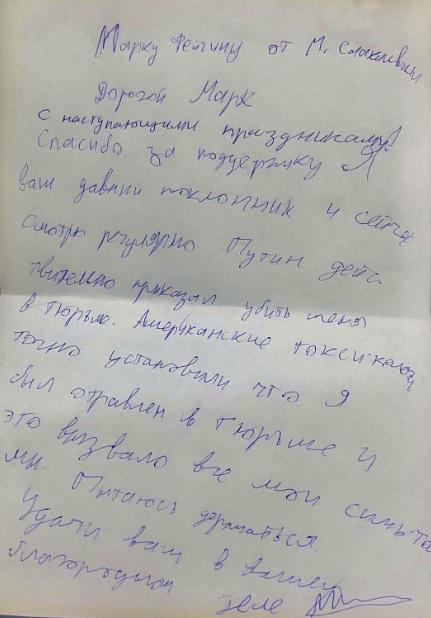 Марку Фейгину от М. Саакашвили
Дорогой Марк
с наступающими праздниками!
Спасибо за поддержку Я
ваш давний поклонник и сейчас
смотрю регулярно Путин дейс
твительно приказал убить меня
в тюрьме. Американские токсикологи
точно установили что я
был отравлен в тюрьме и
это вызвало все мои симпто
мы. Пытаюсь держаться.
Удачи вам в вашем
благородном
деле